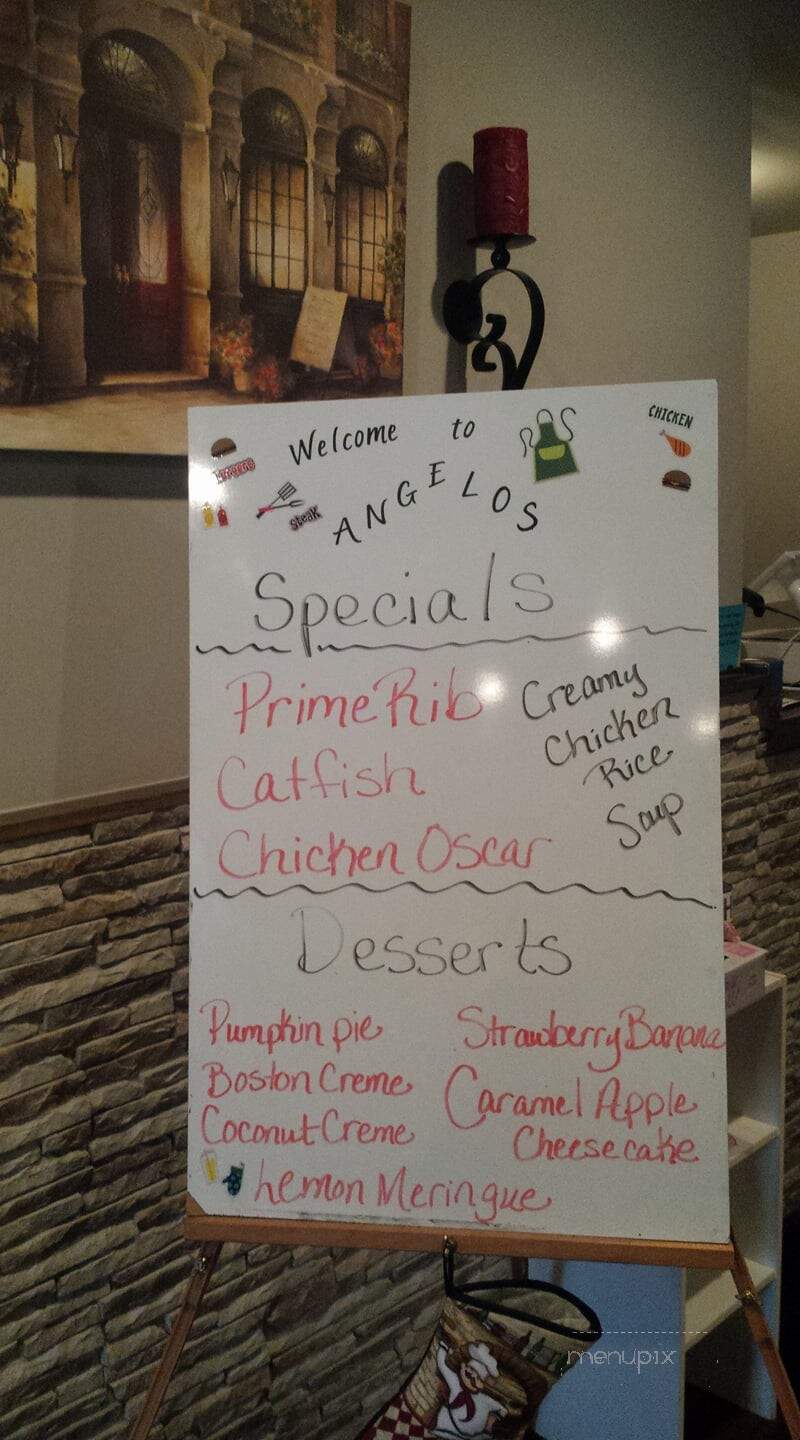 Welcome to
ANGELOS
BURGERS
Steak
CHICKEN
Specials
Prime Rib
Catfish
Chicken Oscar
Creamy
Chicken
Rice
Soup
Desserts
Pumpkin pie
Boston Creme
Coconut Creme
Lemon Meringue
Strawberry Banana
Caramel Apple
Cheesecake
menupix